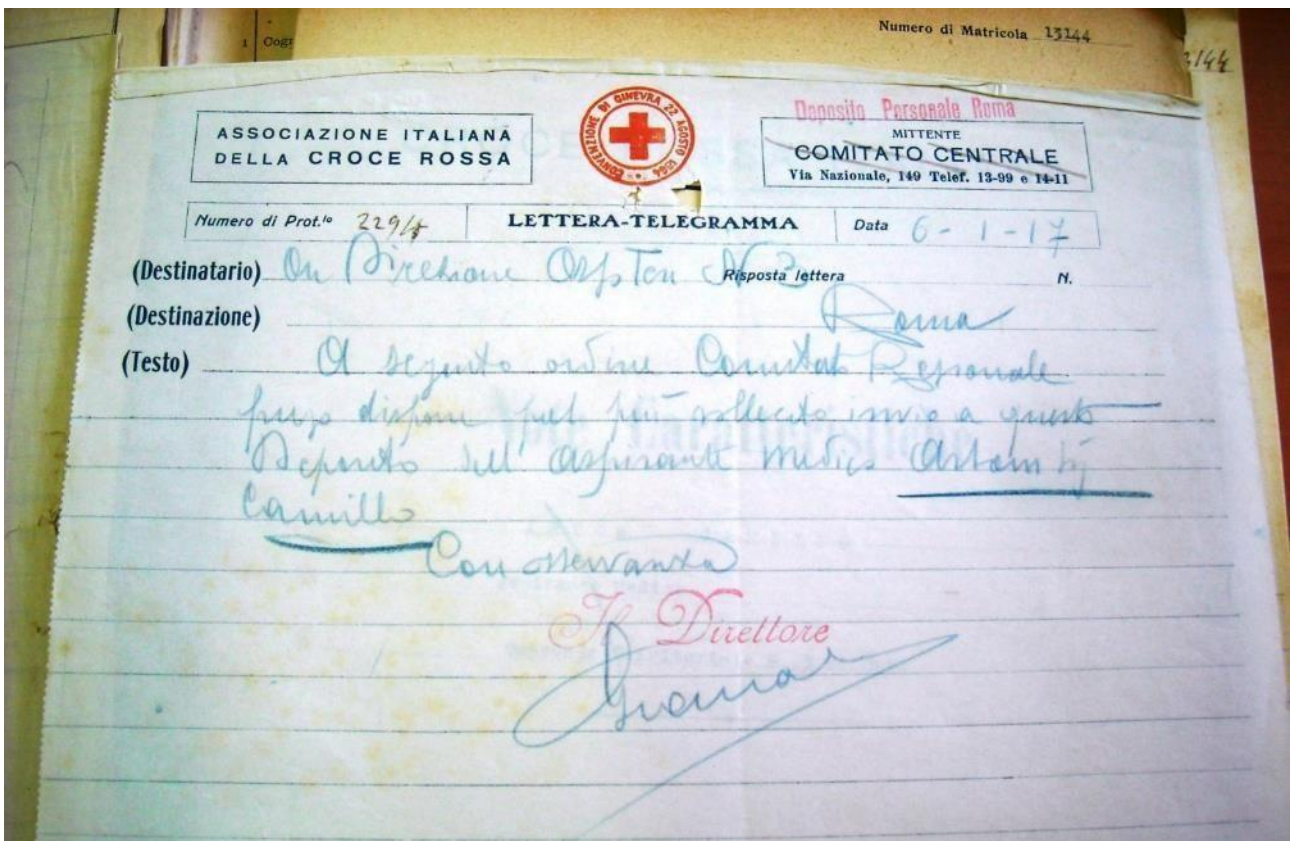 Numero di Matricola 13144
1 Cog
3144
CONVENZIONE DI GINEVRA 22 AGOSTO 1864
Deposito Personale Roma
ASSOCIAZIONE ITALIANA
DELLA CROCE ROSSA
MITTENTE
COMITATO CENTRALE
Via Nazionale, 149 Telef. 13-99 e 14-11
Numero di Prot.lo 229/ LETTERA-TELEGRAMMA Data 6-1-17
(Destinatario) On Direzione Osp Ter N 3 Risposta lettera N.
(Destinazione) Roma
(Testo) A seguito ordine Comitato Regionale
prego disporre pel più sollecito invio a questo
Deposito dell' aspirante medico
Camillo
Con osservanza
Il Direttore